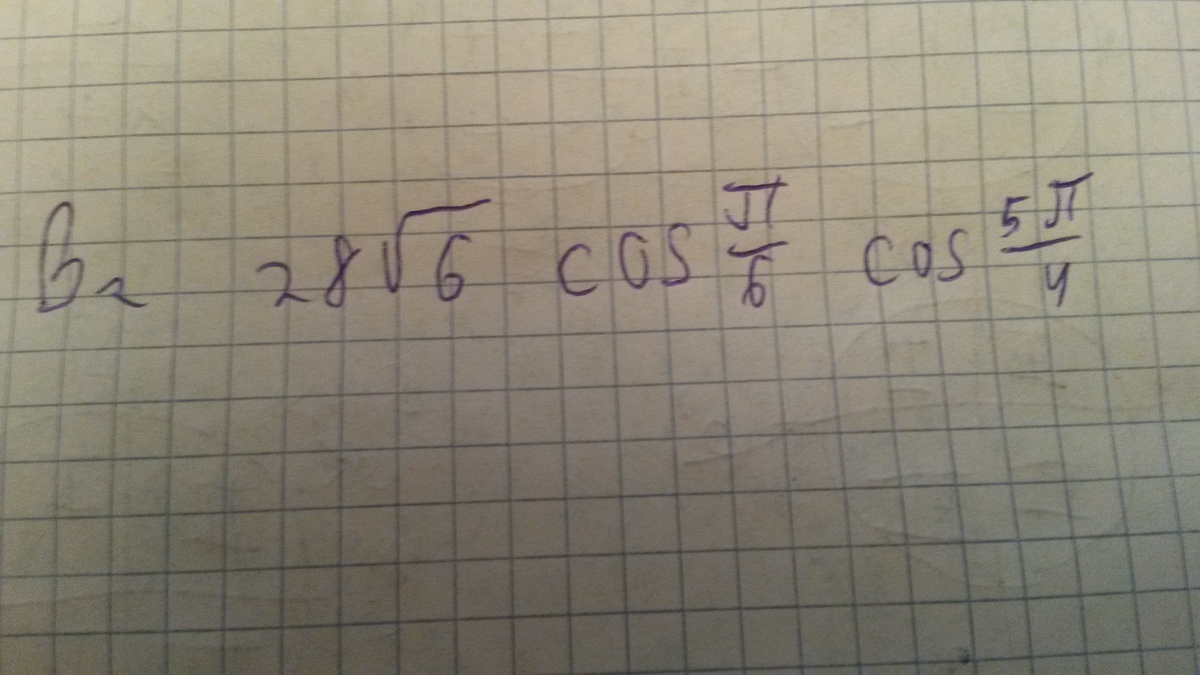 B2 28√6 cos π/6 cos 5π/4